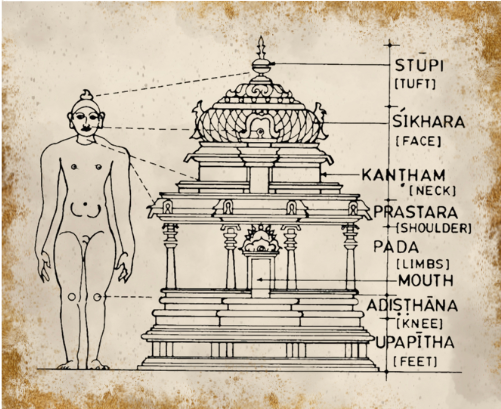 STŪPI
[TUFT]
ŚIKHARA
[FACE]
KANṬHAM
[NECK]
PRASTARA
[SHOULDER]
PADA
[LIMBS]
MOUTH
ADIṢṬHĀNA
[KNEE]
UPAPĪTHA
[FEET]